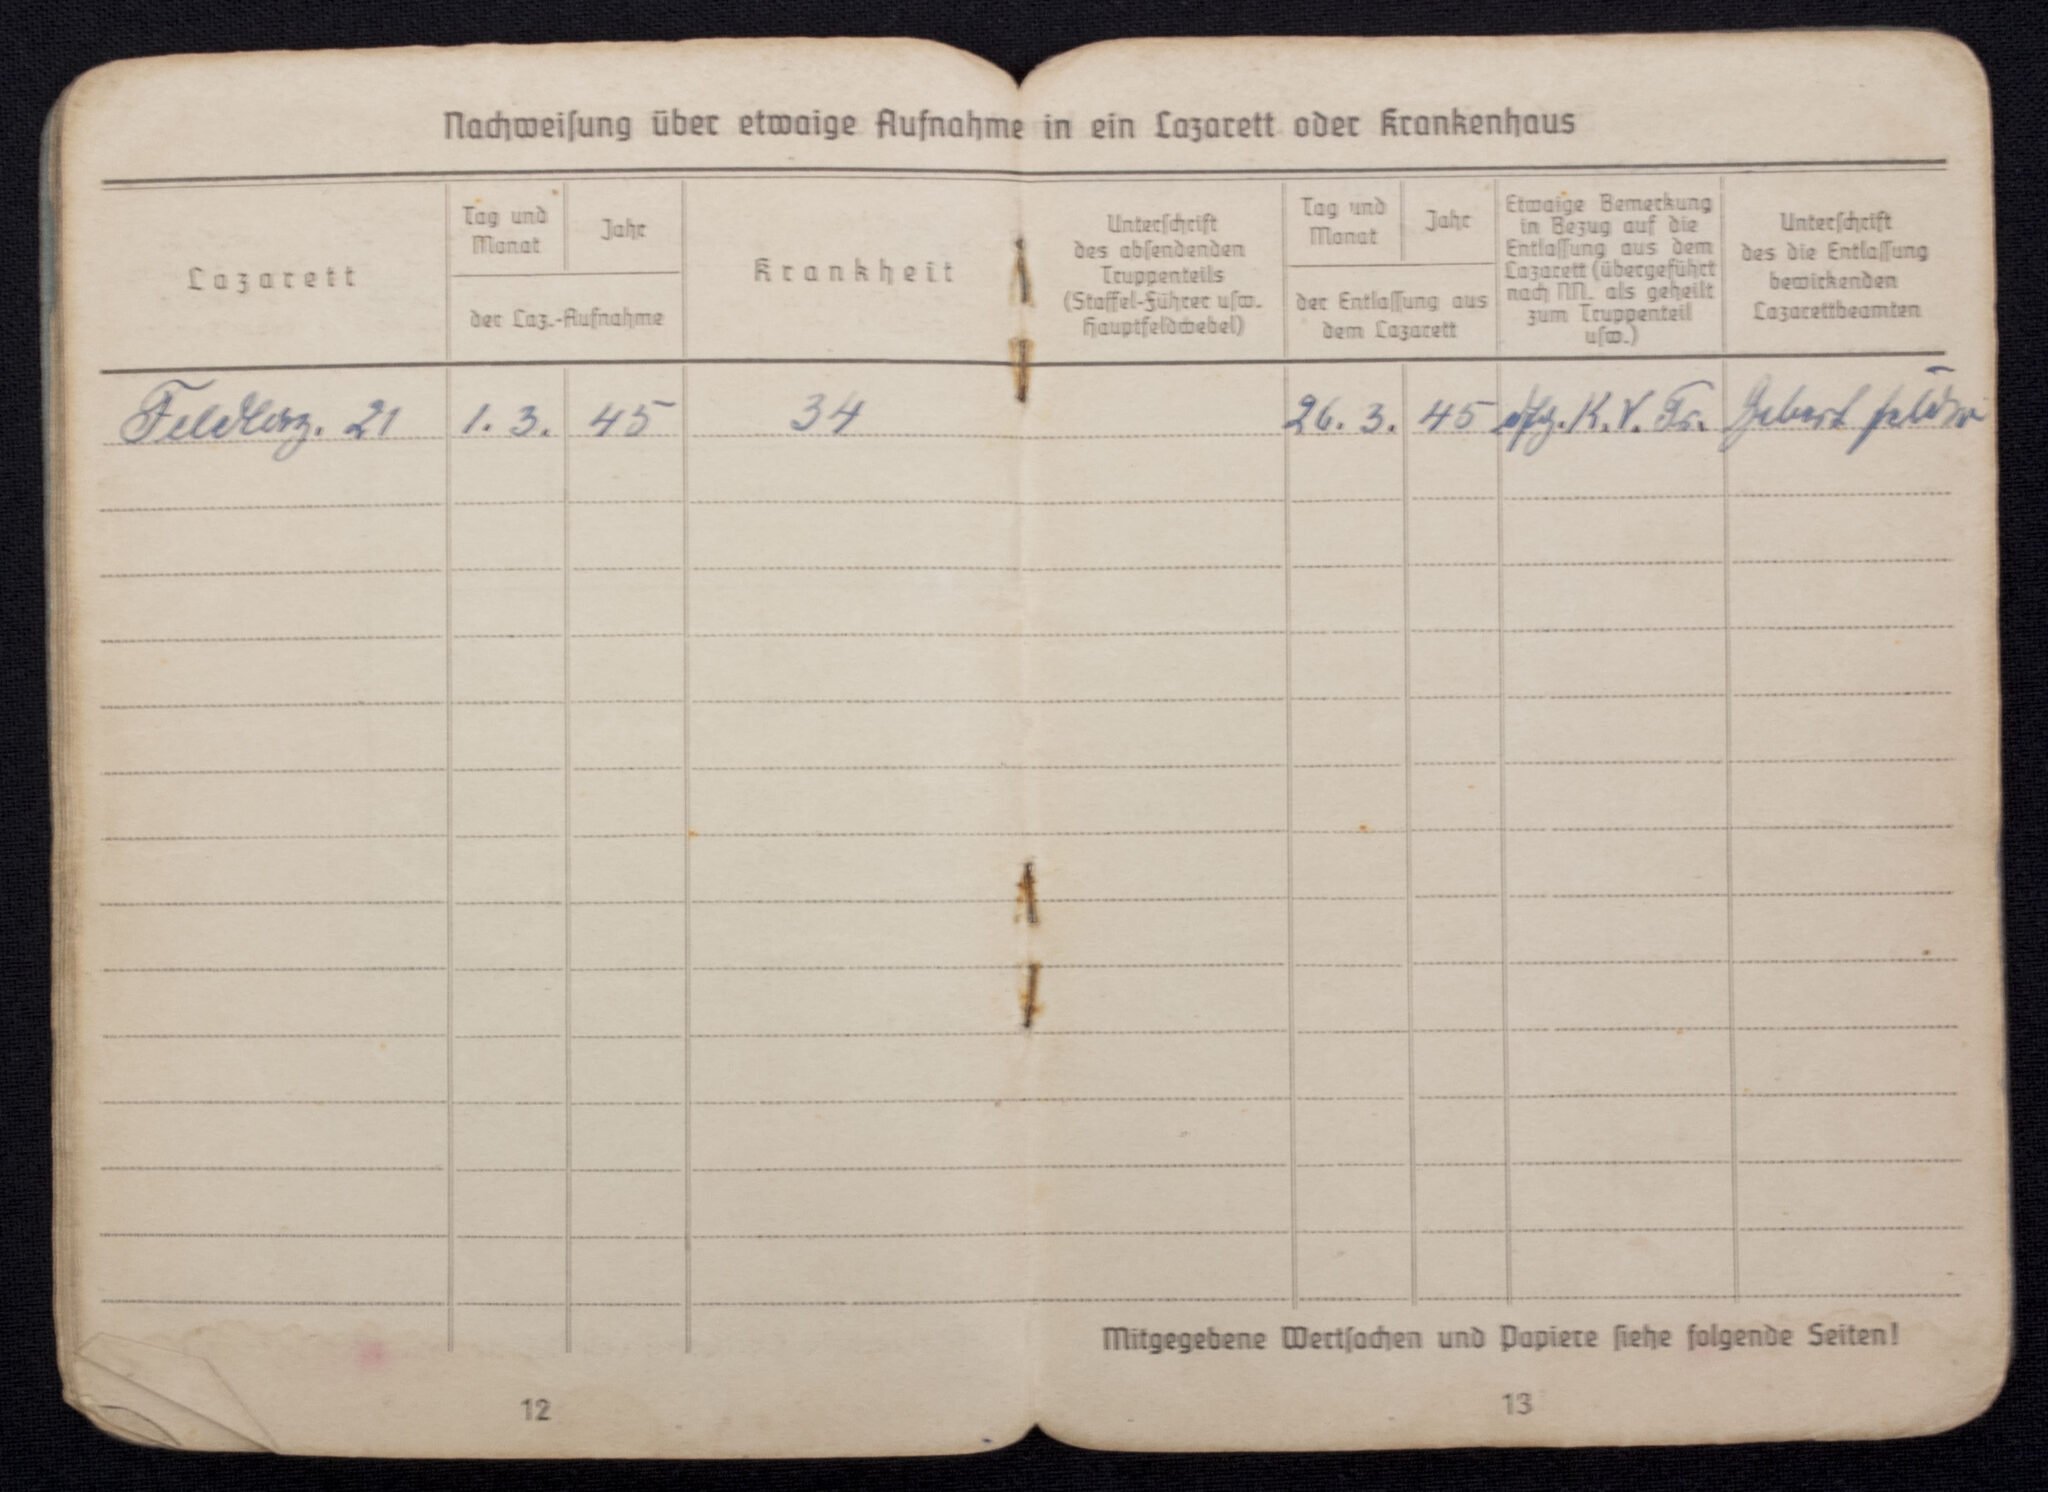 Nachweisung über etwaige Aufnahme in ein Lazarett oder Krankenhaus
Lazarett
Tag und
Monat
Jahr
der Laz.-Aufnahme
Krankheit
Unterschrift
des absendenden
Truppenteils
(Staffel-Führer usw.
Hauptfeldwebel)
Tag und
Monat
Jahr
der Entlassung aus
dem Lazarett
Etwaige Bemerkung
in Bezug auf die
Entlassung aus dem
Lazarett (übergeführt
nach NN. als geheilt
zum Truppenteil
usw.)
Unterschrift
des die Entlassung
bewirkenden
Lazarettbeamten
Feldlaz. 21 1. 3. 45 34 26. 3. 45 K.V. Tr.
Mitgegebene Wertsachen und Papiere siehe folgende Seiten!
12
13